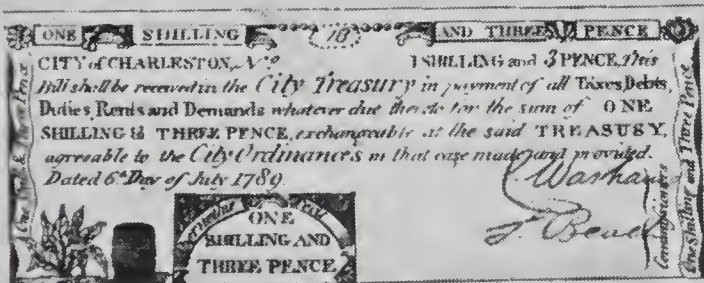 ONE SHILLING AND THREE PENCE
CITY of CHARLESTON, No 1 SHILLING and 3 PENCE, This
Bill shall be received in the City Treasury in payment of all Taxes, Debts,
Duties, Rents and Demands whatever due thereto for the sum of ONE
SHILLING & THREE PENCE, exchangeable at the said TREASURY,
agreeable to the City Ordinances in that case made and provided.
Dated 6th Day of July 1789.
ONE
SHILLING AND
THREE PENCE
One Shill. & Three Pence
Commissioners
One Shilling and Three Pence